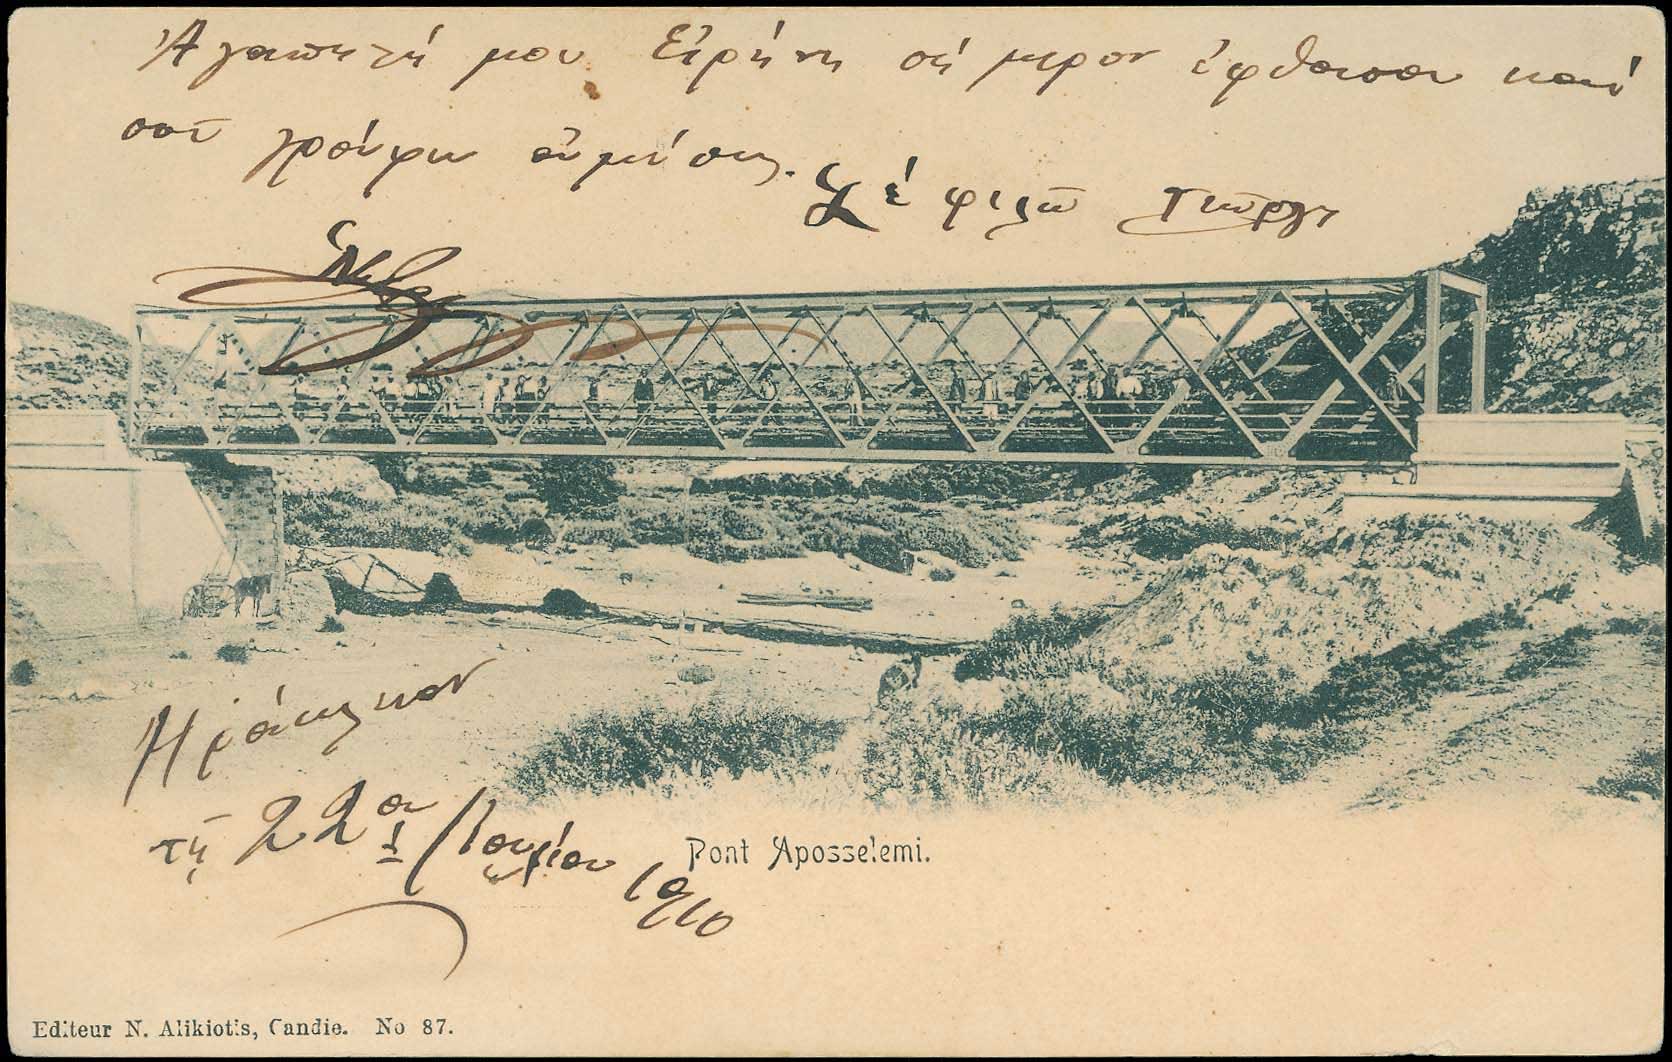 Ἀγαπητή μου Εἰρήνη σήμερον ἔφθασα καὶ
σοῦ γράφω ἀμέσως.
Σέ φιλῶ Γιῶργη
Ἡράκλειον
τῇ 22α 1910
Pont Aposselemi.
Editeur N. Alikiotis, Candie. No 87.